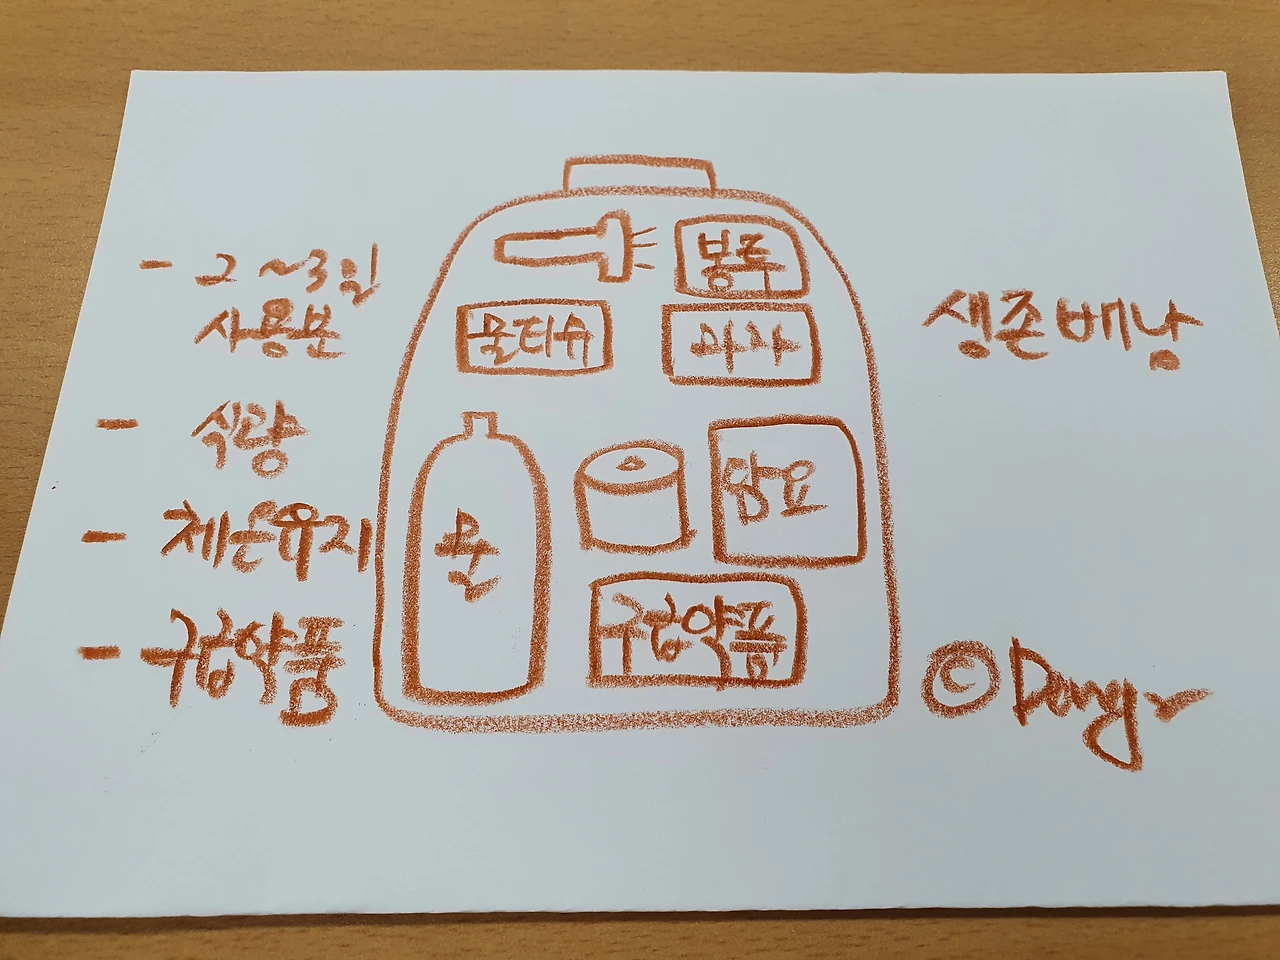 - 2~3일
사용분
- 식량
- 체온유지
- 구급약품
봉투
물티슈
물
담요
구급약품
생존배낭